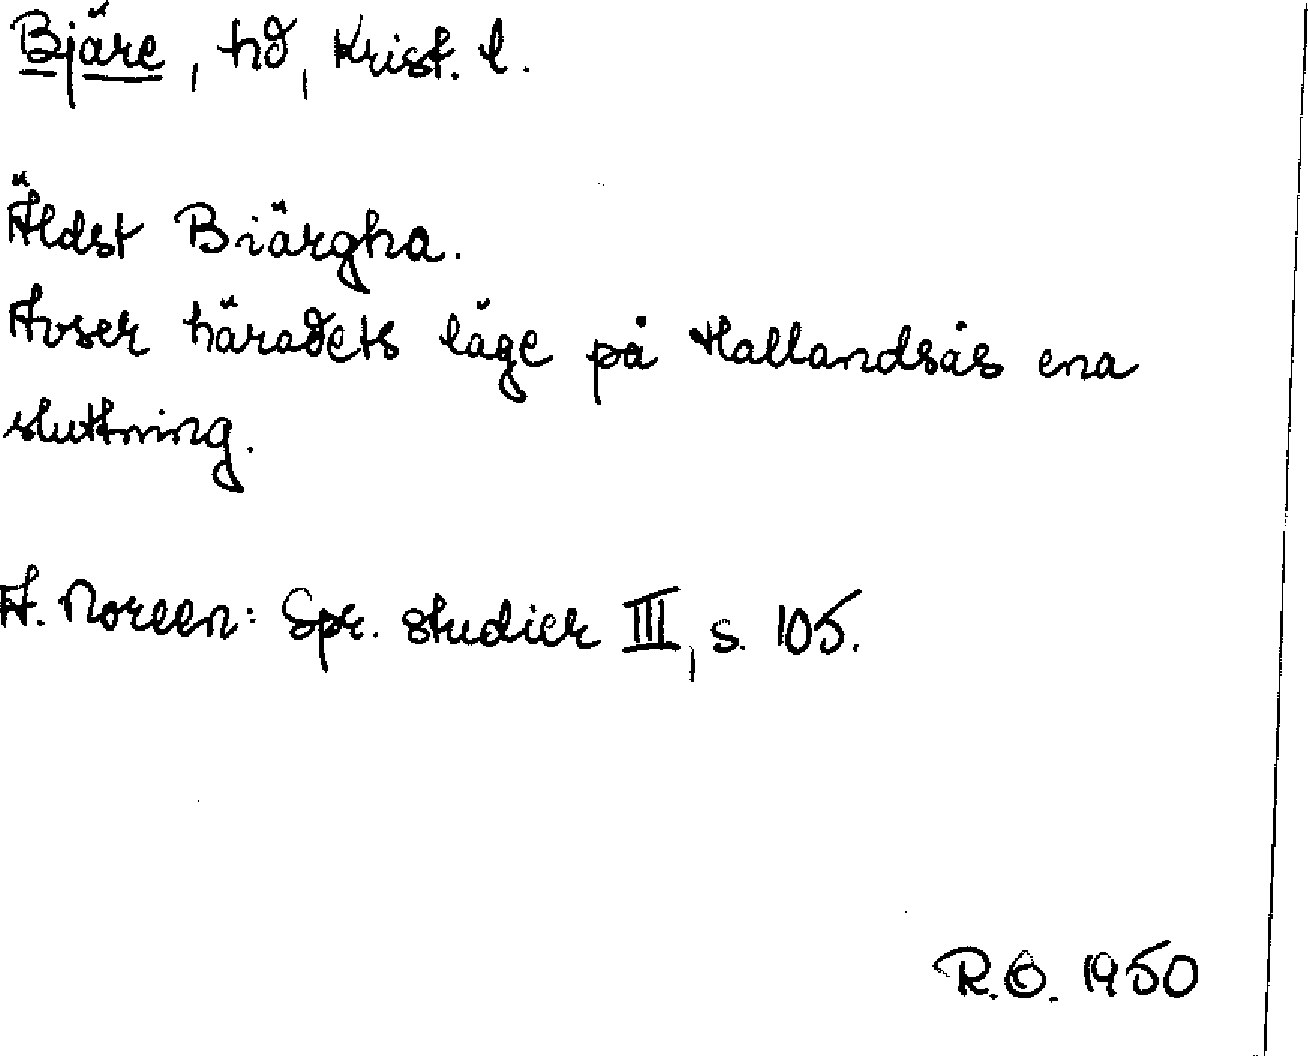 Bjäre, hd, Krist. l.
Äldst Biärgha.
Avser häradets läge på Hallandsås ena
sluttning.
A. Noreen: Spr. studier III, s. 105.
R.O. 1950